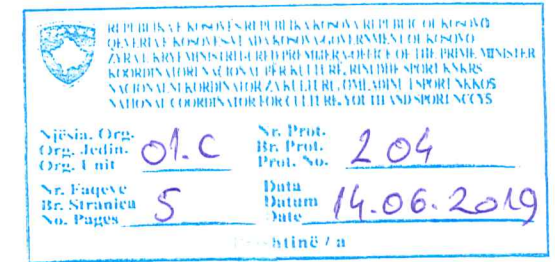 REPUBLIKA E KOSOVËS REPUBLIKA KOSOVA REPUBLIC OF KOSOVO
QEVERIA E KOSOVËS-VLADA KOSOVA-GOVERNMENT OF KOSOVO
ZYRA E KRYEMINISTRIT-URED PREMIJERA-OFFICE OF THE PRIME MINISTER
KOORDINATORI NACIONAL PËR KULTURË, RINI DHE SPORT KNKRS
NACIONALNI KORDINATOR ZA KULTURE, OMLADINU I SPORT NKKOS
NATIONAL COORDINATOR FOR CULTURE, YOUTH AND SPORT NCCYS
Njësia. Org. Nr. Prot.
Org. Jedin. 01.C Br. Prot. 204
Org. Unit Prot. No.
Nr. Faqeve Data
Br. Stranica 5 Datum 14.06.2019
No. Pages Date
htinë / a